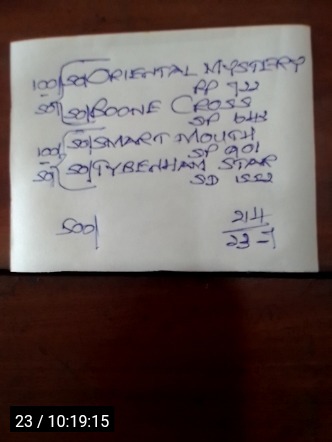 100/ 50/ ORIENTAL MYSTERY
PP 722
50/ 50/ BOONE CROSS
SP
100/ 50/ SMART MOUTH
SP 901
50/ 50/ TYBENHAM STAR
SD 1552
500/
214
23-7
23 / 10:19:15